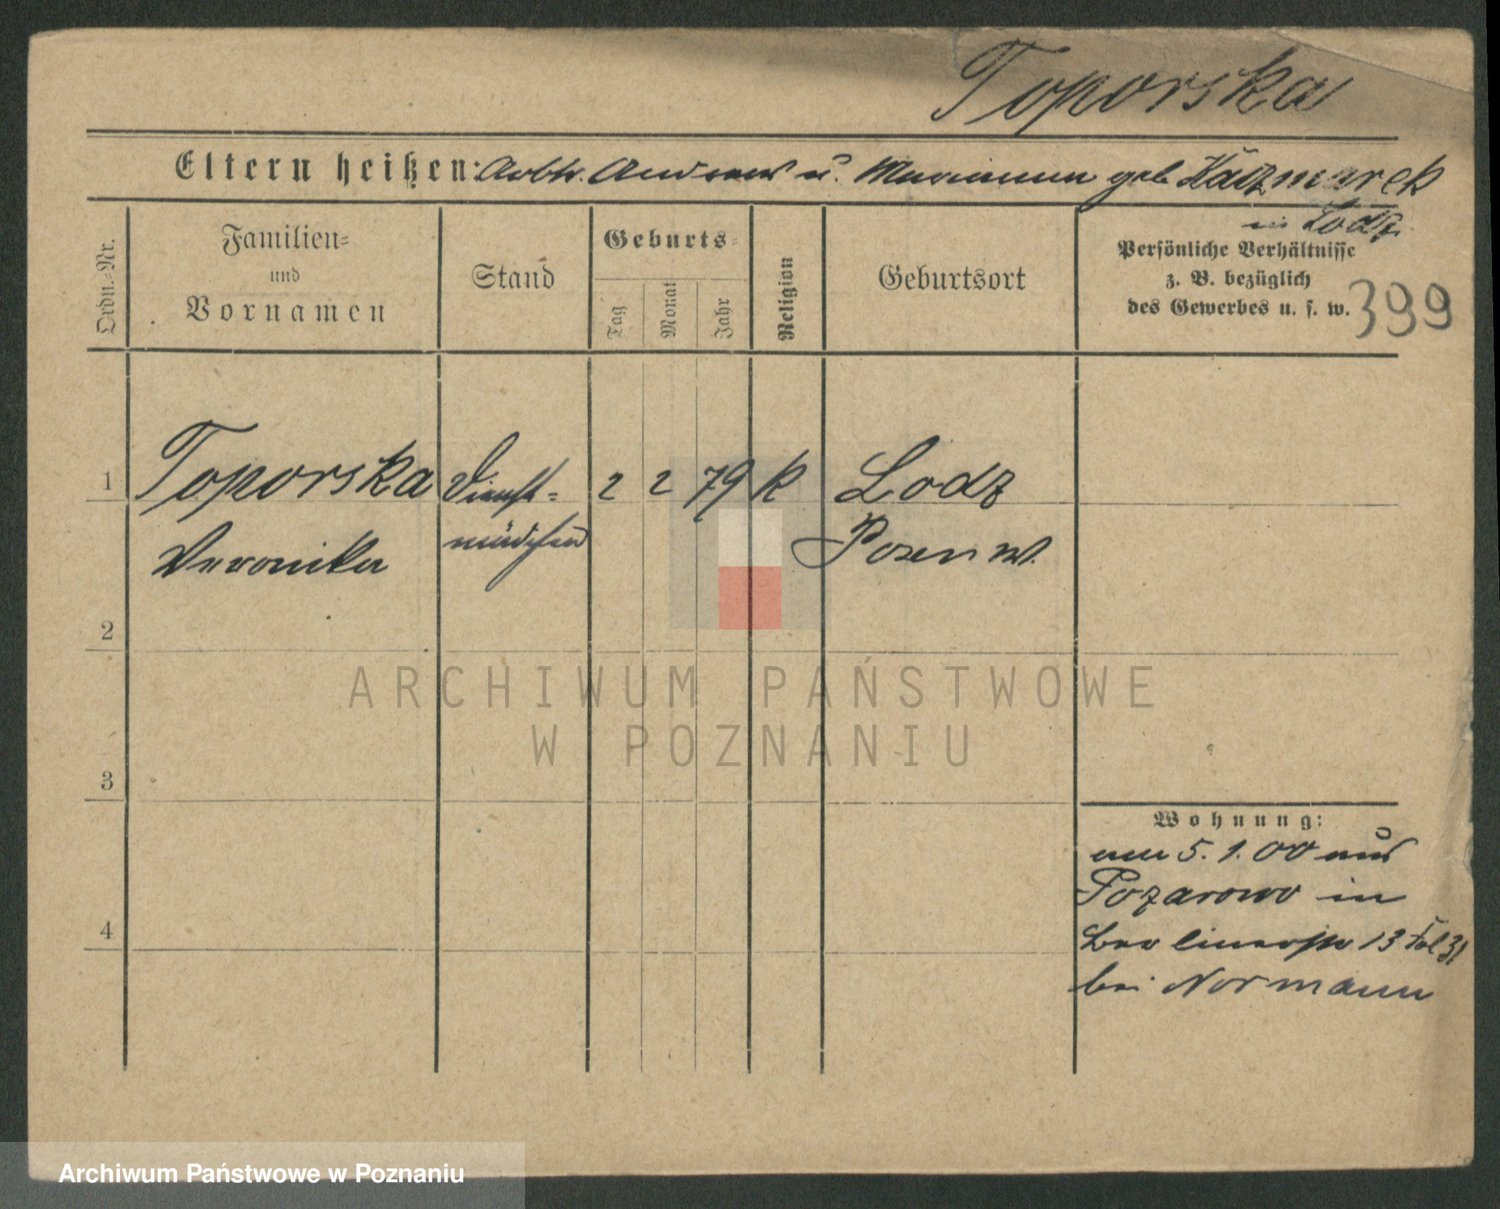 Toporska
Eltern heißen: Arbtr. Andreas u. Marianna geb Kaczmarek
in Lodz.
Ordn.-Nr.
Familien-
und
Vornamen
Stand
Geburts-
Tag
Monat
Jahr
Religion
Geburtsort
Persönliche Verhältnisse
z. B. bezüglich
des Gewerbes u. s. w.
399
1 Toporska Dienst- 2 2 79 k Lodz
Veronika mädchen Posen W.
2
ARCHIWUM PAŃSTWOWE
W POZNANIU
3
Wohnung:
am 5. 1. 00 aus
Pozarowo in
4 Berlinerstr 13 31
bei Normann
Archiwum Państwowe w Poznaniu